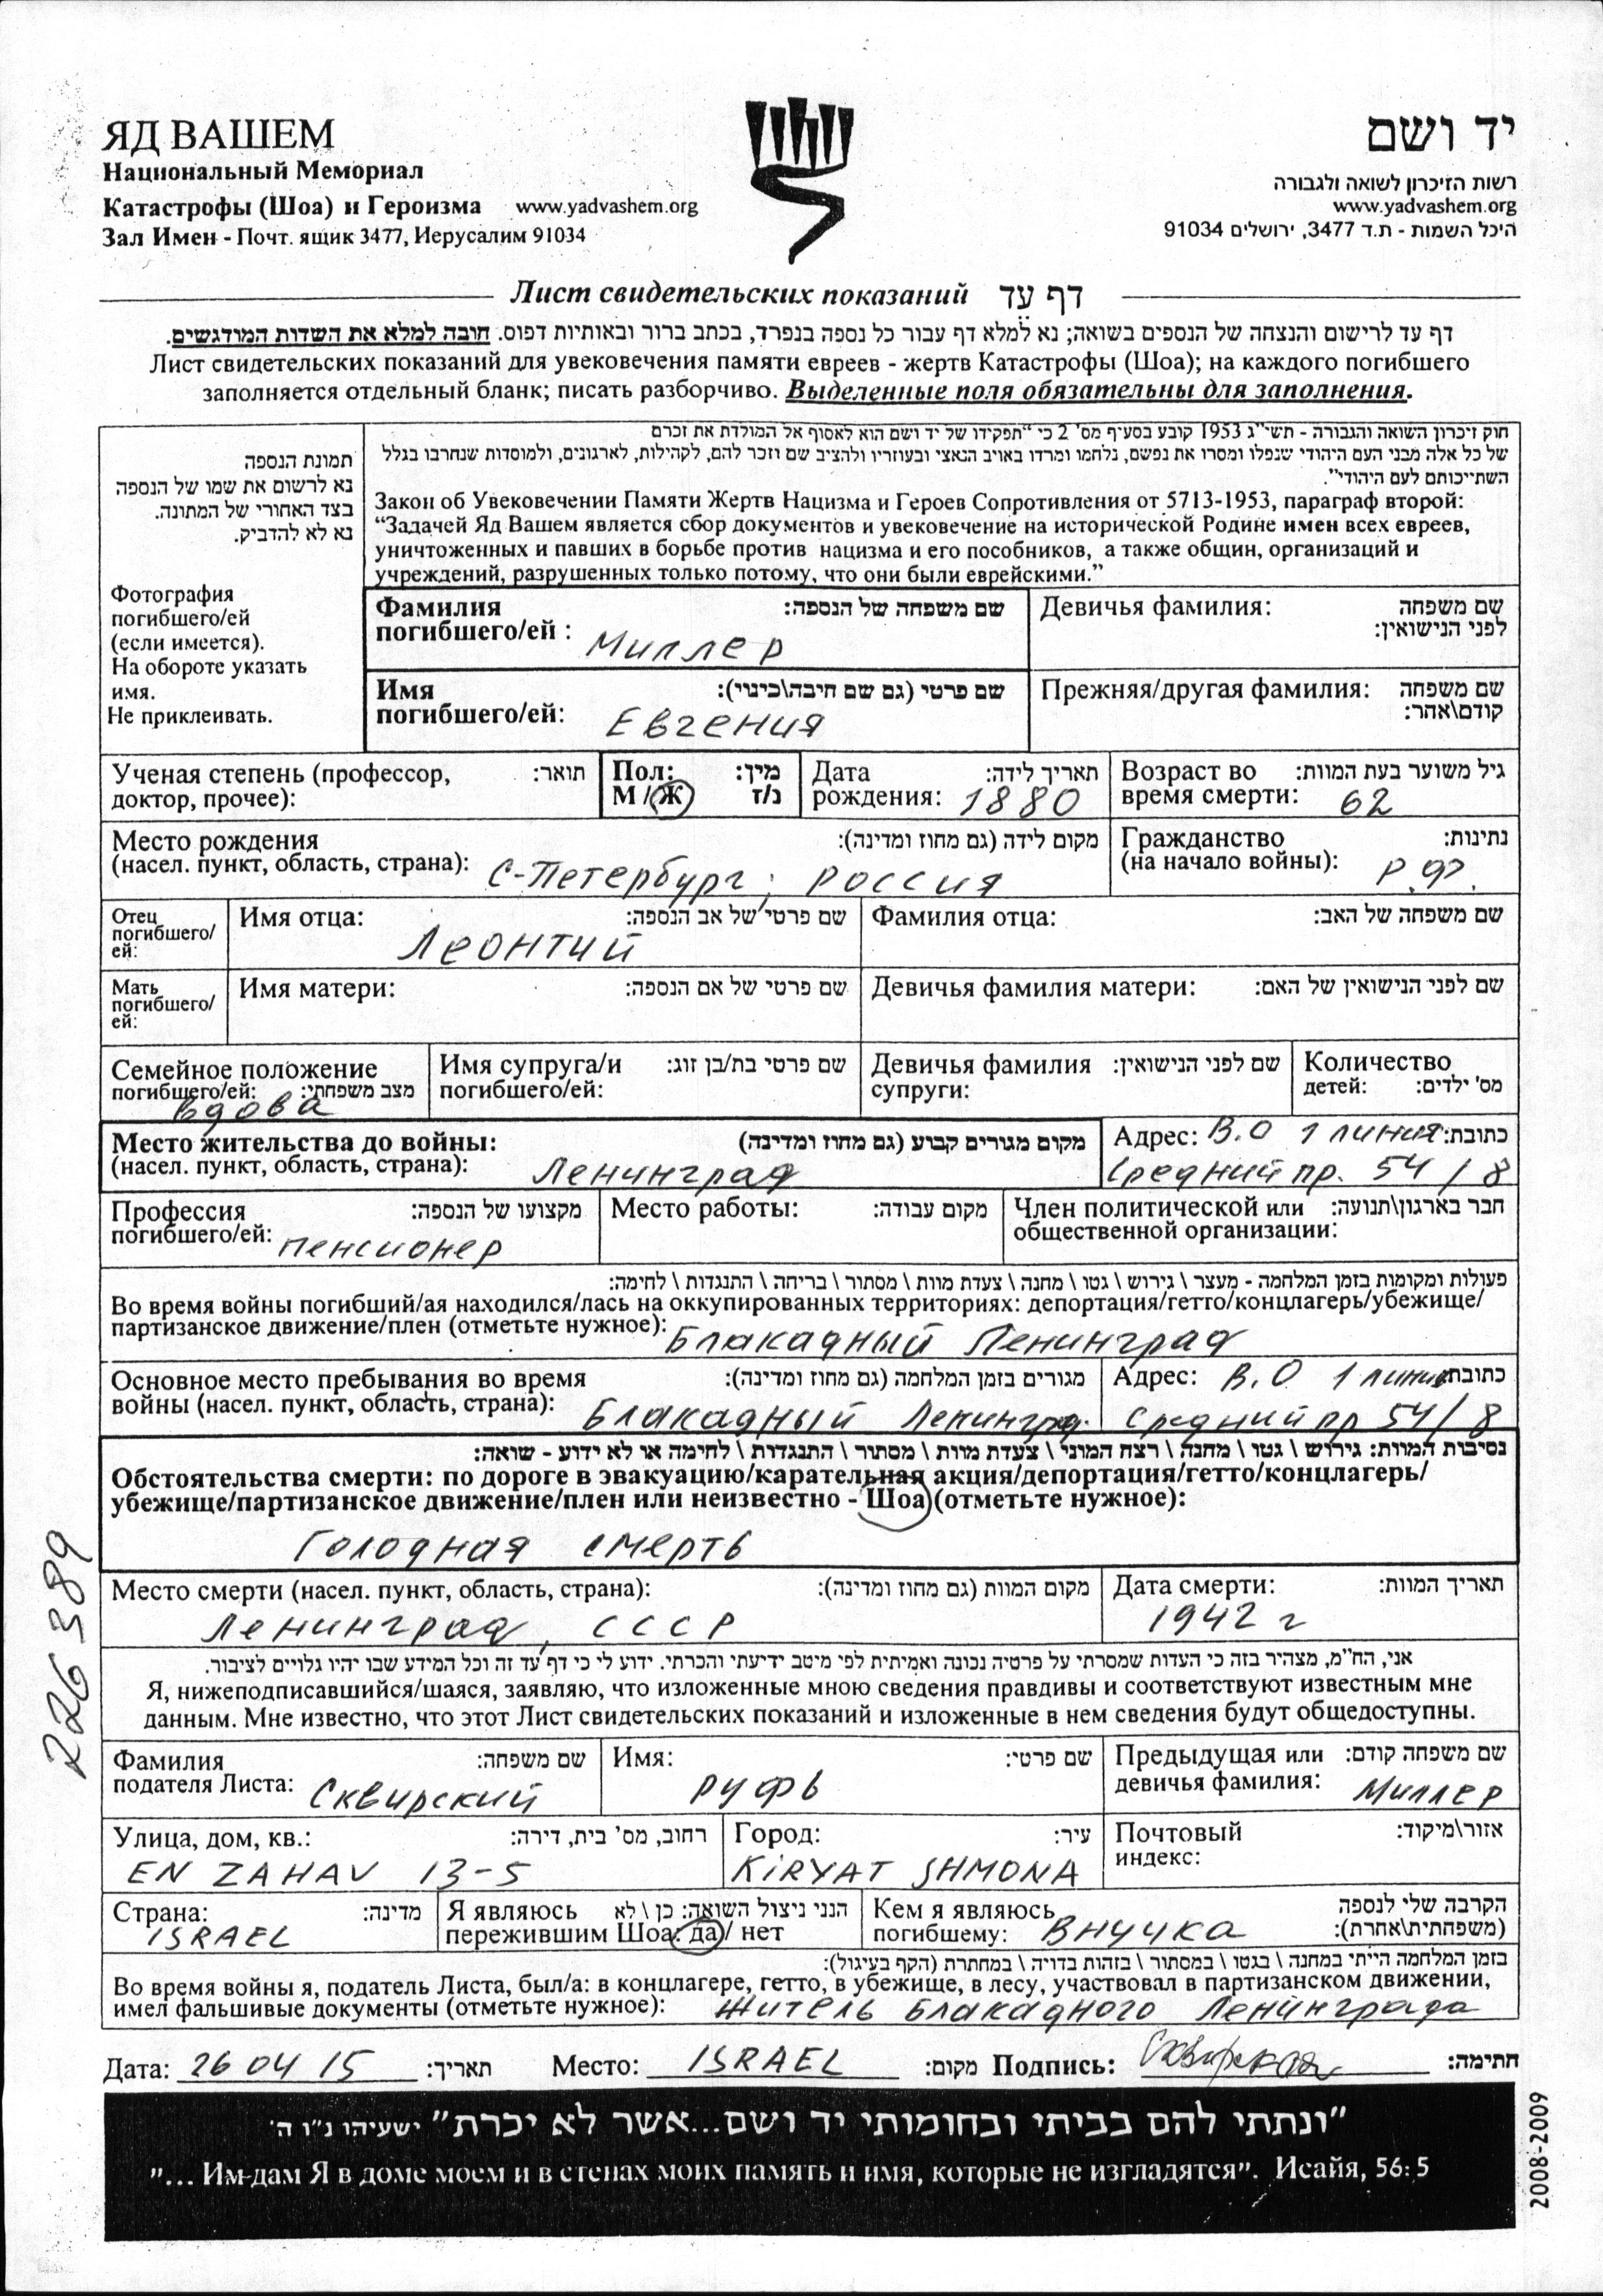 ЯД ВАШЕМ
יד ושם
Национальный Мемориал
Катастрофы (Шоа) и Героизма www.yadvashem.org
Зал Имен - Почт. ящик 3477, Иерусалим 91034
רשות הזיכרון לשואה ולגבורה
www.yadvashem.org
היכל השמות - ת.ד 3477, ירושלים 91034
Лист свидетельских показаний דף עד
דף עד לרישום והנצחה של הנספים בשואה; נא למלא דף עבור כל נספה בנפרד, בכתב ברור ובאותיות דפוס. חובה למלא את השדות המודגשים.
Лист свидетельских показаний для увековечения памяти евреев - жертв Катастрофы (Шоа); на каждого погибшего
заполняется отдельный бланк; писать разборчиво. Выделенные поля обязательны для заполнения.
תמונת הנספה
נא לרשום את שמו של הנספה
בצד האחורי של התמונה.
נא לא להדביק.
Фотография
погибшего/ей
(если имеется).
На обороте указать
имя.
Не приклеивать.
חוק זיכרון השואה והגבורה - תשי"ג 1953 קובע בסעיף מס' 2 כי "תפקידו של יד ושם הוא לאסוף אל המולדת את זכרם
של כל אלה מבני העם היהודי שנפלו ומסרו את נפשם, נלחמו ומרדו באויב הנאצי ובעוזריו ולהציב שם וזכר להם, לקהילות, לארגונים, ולמוסדות שנחרבו בגלל
השתייכותם לעם היהודי".
Закон об Увековечении Памяти Жертв Нацизма и Героев Сопротивления от 5713-1953, параграф второй:
“Задачей Яд Вашем является сбор документов и увековечение на исторической Родине имен всех евреев,
уничтоженных и павших в борьбе против нацизма и его пособников, а также общин, организаций и
учреждений, разрушенных только потому, что они были еврейскими.”
Фамилия שם משפחה של הנספה:
погибшего/ей : Миллер
Девичья фамилия: שם משפחה
לפני הנישואין:
Имя שם פרטי (גם שם חיבה\כינוי):
погибшего/ей: Евгения
Прежняя/другая фамилия: שם משפחה
קודם\אחר:
Ученая степень (профессор, תואר:
доктор, прочее):
Пол: מין:
М / Ж ז/נ
Дата תאריך לידה:
рождения: 1880
Возраст во גיל משוער בעת המוות:
время смерти: 62
Место рождения מקום לידה (גם מחוז ומדינה):
(насел. пункт, область, страна): С-Петербург, Россия
Гражданство נתינות:
(на начало войны): Р.Ф.
Отец
погибшего/
ей:
Имя отца: שם פרטי של אב הנספה:
Леонтий
Фамилия отца: שם משפחה של האב:
Мать
погибшего/
ей:
Имя матери: שם פרטי של אם הנספה:
Девичья фамилия матери: שם לפני הנישואין של האם:
Семейное положение
погибшего/ей: מצב משפחתי:
вдова
Имя супруга/и שם פרטי בת/בן זוג:
погибшего/ей:
Девичья фамилия שם לפני הנישואין:
супруги:
Количество
детей: מס' ילדים:
Место жительства до войны: מקום מגורים קבוע (גם מחוז ומדינה)
(насел. пункт, область, страна): Ленинград
Адрес: В.О 1 линия כתובת:
Средний пр. 54/8
Профессия מקצועו של הנספה:
погибшего/ей: пенсионер
Место работы: מקום עבודה:
Член политической или חבר בארגון\תנועה:
общественной организации:
פעולות ומקומות בזמן המלחמה - מעצר \ גירוש \ גטו \ מחנה \ צעדת מוות \ מסתור \ בריחה \ התנגדות \ לחימה:
Во время войны погибший/ая находился/лась на оккупированных территориях: депортация/гетто/концлагерь/убежище/
партизанское движение/плен (отметьте нужное): Блакадный Ленинград
Основное место пребывания во время מגורים בזמן המלחמה (גם מחוז ומדינה):
войны (насел. пункт, область, страна): Блакадный Ленингр.
Адрес: В.О 1 линия כתובת:
Средний пр 54/8
נסיבות המוות: גירוש \ גטו \ מחנה \ רצח המוני \ צעדת מוות \ מסתור \ התנגדות \ לחימה או לא ידוע - שואה:
Обстоятельства смерти: по дороге в эвакуацию/карательная акция/депортация/гетто/концлагерь/
убежище/партизанское движение/плен или неизвестно - Шоа (отметьте нужное):
Голодная смерть
Место смерти (насел. пункт, область, страна): מקום המוות (גם מחוז ומדינה):
Ленинград, СССР
Дата смерти: תאריך המוות:
1942 г
אני, הח"מ, מצהיר בזה כי העדות שמסרתי על פרטיה נכונה ואמיתית לפי מיטב ידיעתי והכרתי. ידוע לי כי דף עד זה וכל המידע שבו יהיו גלויים לציבור.
Я, нижеподписавшийся/шаяся, заявляю, что изложенные мною сведения правдивы и соответствуют известным мне
данным. Мне известно, что этот Лист свидетельских показаний и изложенные в нем сведения будут общедоступны.
Фамилия שם משפחה:
подателя Листа: Сквирский
Имя: שם פרטי:
Руфь
Предыдущая или שם משפחה קודם:
девичья фамилия: Миллер
Улица, дом, кв.: רחוב, מס' בית, דירה:
EN ZAHAV 13-5
Город: עיר:
KIRYAT SHMONA
Почтовый אזור\מיקוד:
индекс:
Страна: מדינה:
ISRAEL
Я являюсь הנני ניצול השואה: כן \ לא
пережившим Шоа: да / нет
Кем я являюсь הקרבה שלי לנספה
погибшему: Внучка (משפחתית\אחרת):
בזמן המלחמה הייתי במחנה \ בגטו \ במסתור \ בזהות בדויה \ במחתרת (הקף בעיגול):
Во время войны я, податель Листа, был/а: в концлагере, гетто, в убежище, в лесу, участвовал в партизанском движении,
имел фальшивые документы (отметьте нужное): Житель Блакадного Ленинграда
Дата: 26 04 15 תאריך: Место: ISRAEL מקום: Подпись: חתימה:
"ונתתי להם בביתי ובחומותי יד ושם...אשר לא יכרת" ישעיהו נ"ו ה'
"... Им дам Я в доме моем и в стенах моих память и имя, которые не изгладятся". Исайя, 56:5
226389
2008-2009